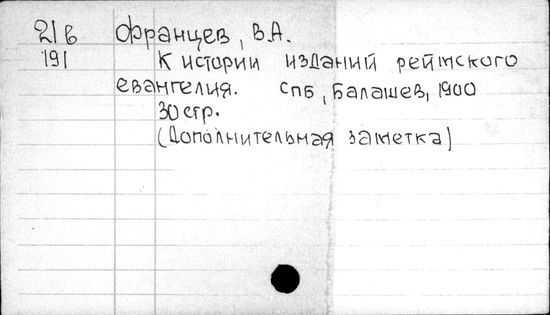 21в Францев, В.А.
191 К истории изданий реймского
евангелия. СПб, Балашев, 1900
30 стр.
(Дополнительная заметка)